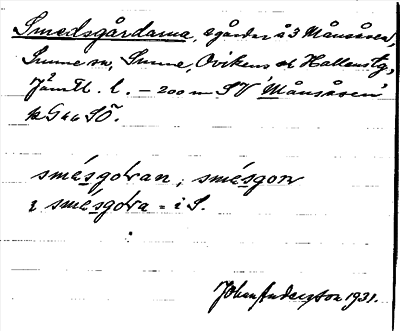 Smedsgårdarna, 2 gårdar å 3 Månsåsen,
Sunne sn, Sunne, Ovikens o Hallens tg,
Jämtl. l. – 200 m SV 'Månsåsen'
på G 44 SÖ.
smésgóran, smésgon
i smésgóra - i S.
Johan Anderson 1931.